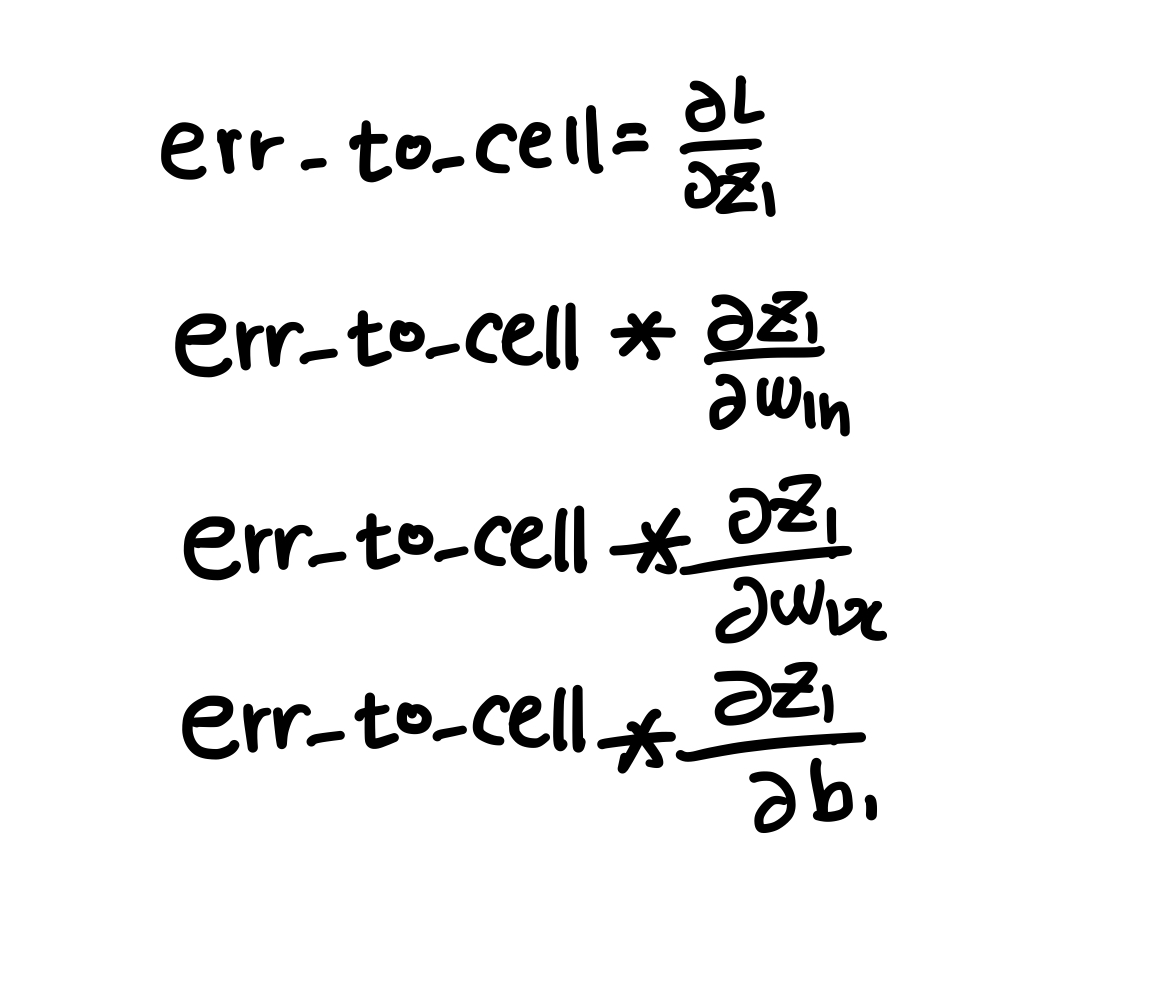 err_to_cell = ∂L/∂z₁
err_to_cell * ∂z₁/∂w₁ₕ
err_to_cell * ∂z₁/∂w₁ₓ
err_to_cell * ∂z₁/∂b₁